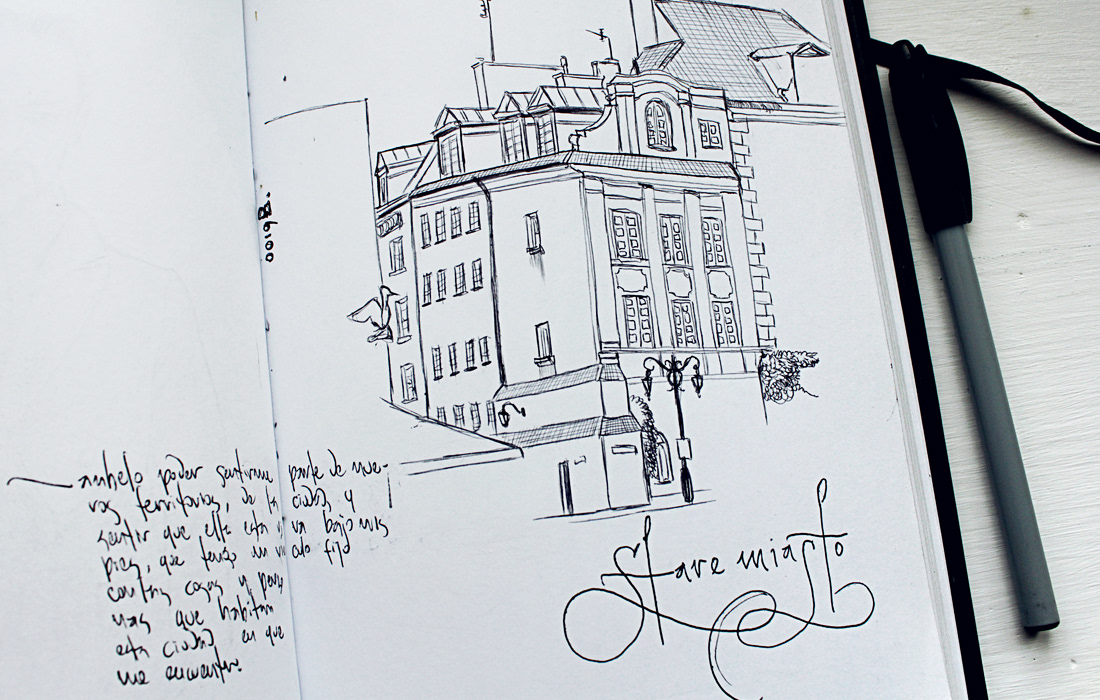 anhelo poder sentirme parte de nue-
vos territorios, de la ciudad, y
sentir que ella esta viva bajo mis
pies, que tengo un vinculo fijo
con las cosas y perso
nas que habitan
esta ciudad en que
me encuentro.
Stare miasto